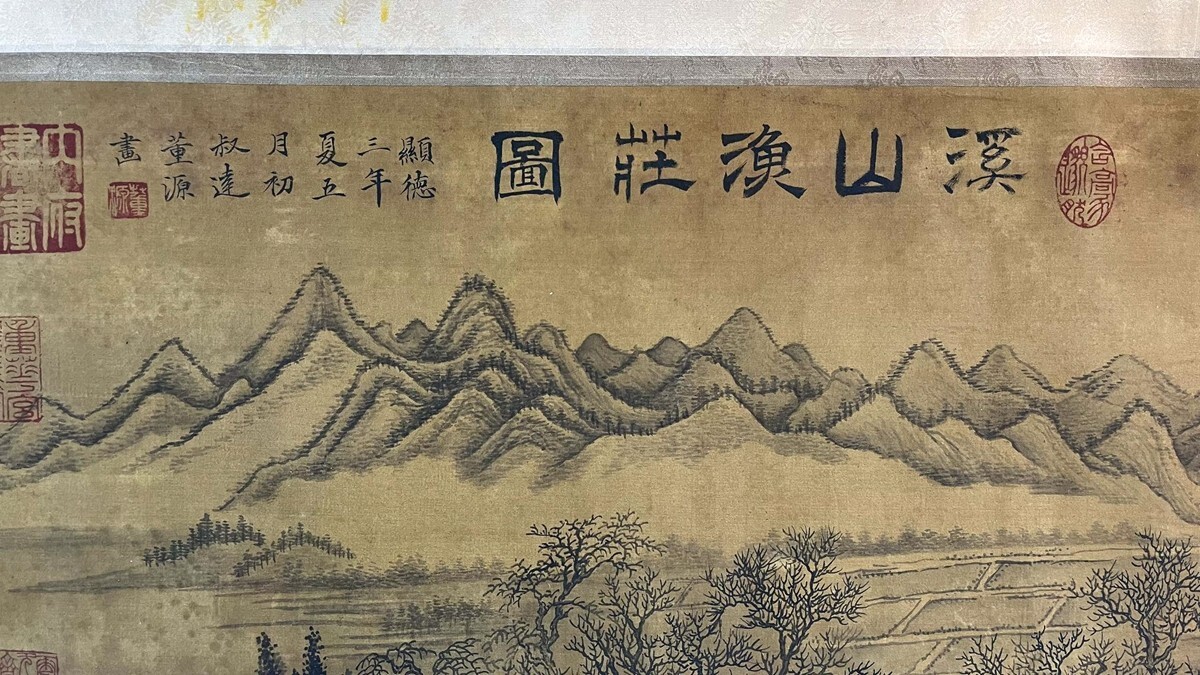 溪山漁莊圖
顯德
三年
夏五
月初
叔達
董源
畫